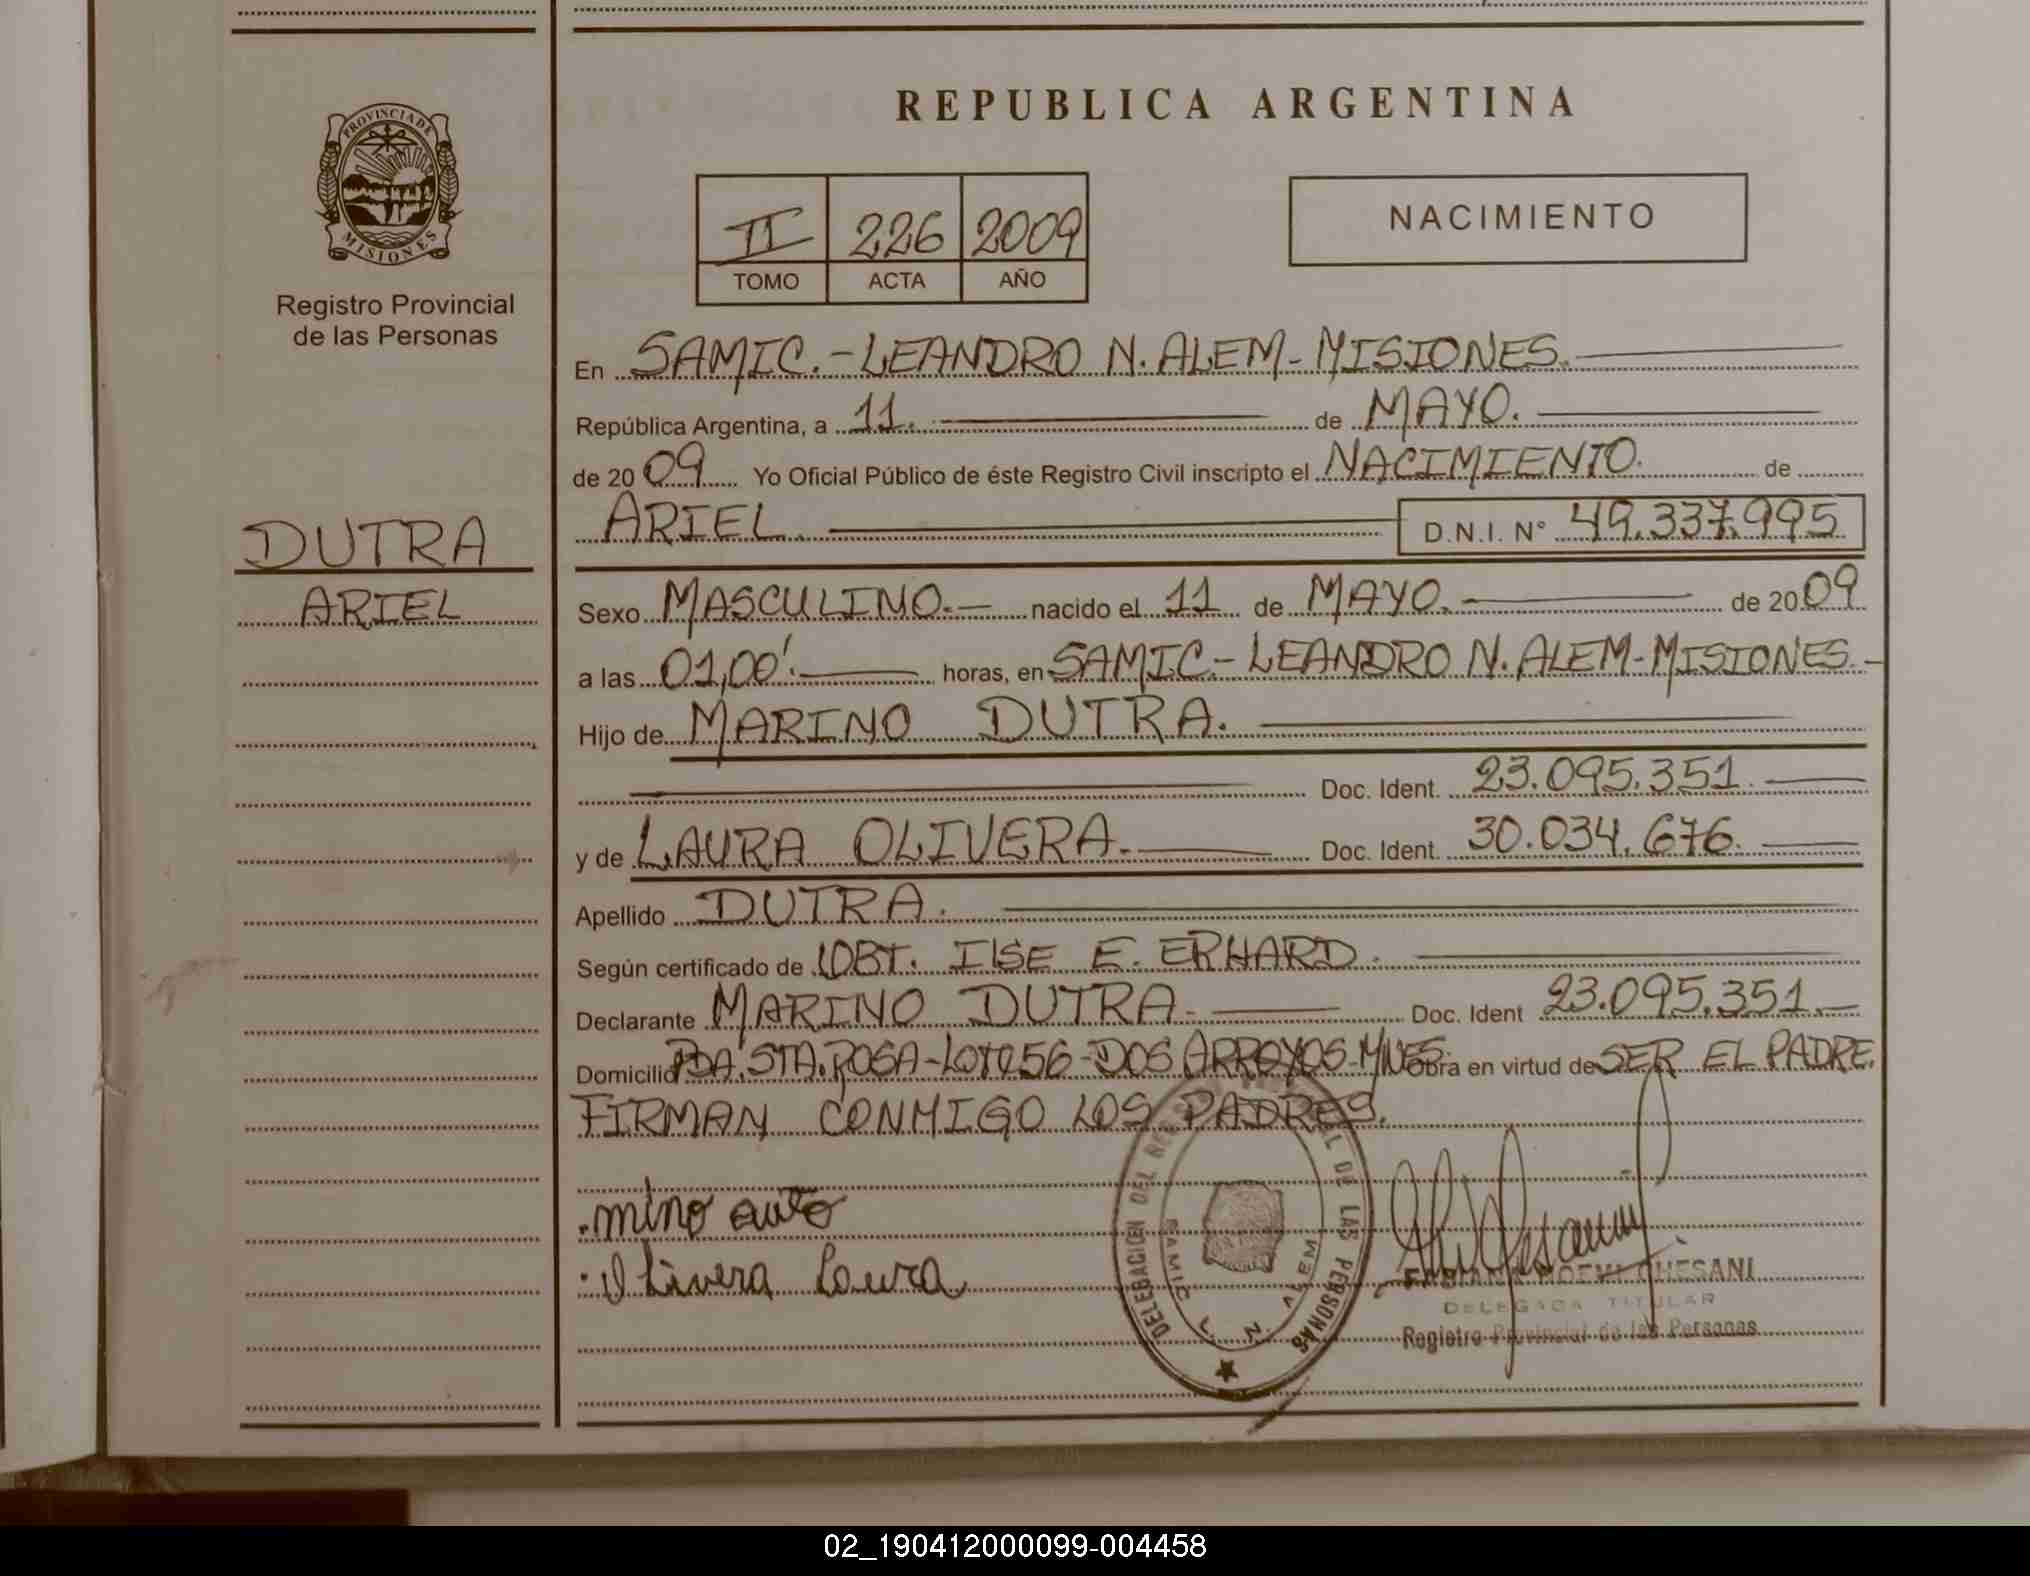 PROVINCIA DE
MISIONES
Registro Provincial
de las Personas
DUTRA
ARIEL
REPUBLICA ARGENTINA
II 226 2009
TOMO ACTA AÑO
NACIMIENTO
En SAMIC.-LEANDRO N. ALEM-MISIONES.
República Argentina, a 11. de MAYO.
de 2009 Yo Oficial Público de éste Registro Civil inscripto el NACIMIENTO. de
ARIEL. D.N.I. N° 49.337.995
Sexo MASCULINO.- nacido el 11 de MAYO. de 2009
a las 01,00'. horas, en SAMIC.-LEANDRO N. ALEM-MISIONES.-
Hijo de MARINO DUTRA.
Doc. Ident. 23.095.351.
y de LAURA OLIVERA. Doc. Ident. 30.034.676.
Apellido DUTRA.
Según certificado de OBT. ILSE E. ERHARD.
Declarante MARINO DUTRA. Doc. Ident 23.095.351.
Domicilio PDA. STA. ROSA-LOTE 56-DOS ARROYOS-MNES. Obra en virtud de SER EL PADRE.
FIRMAN CONMIGO LOS PADRES.
Olivera Laura
DELEGACION DEL REGISTRO PROVINCIAL DE LAS PERSONAS
SAMIC L. N. ALEM
FABIANA NOEMI CHESANI
DELEGADA TITULAR
Registro Provincial de las Personas
02_190412000099-004458